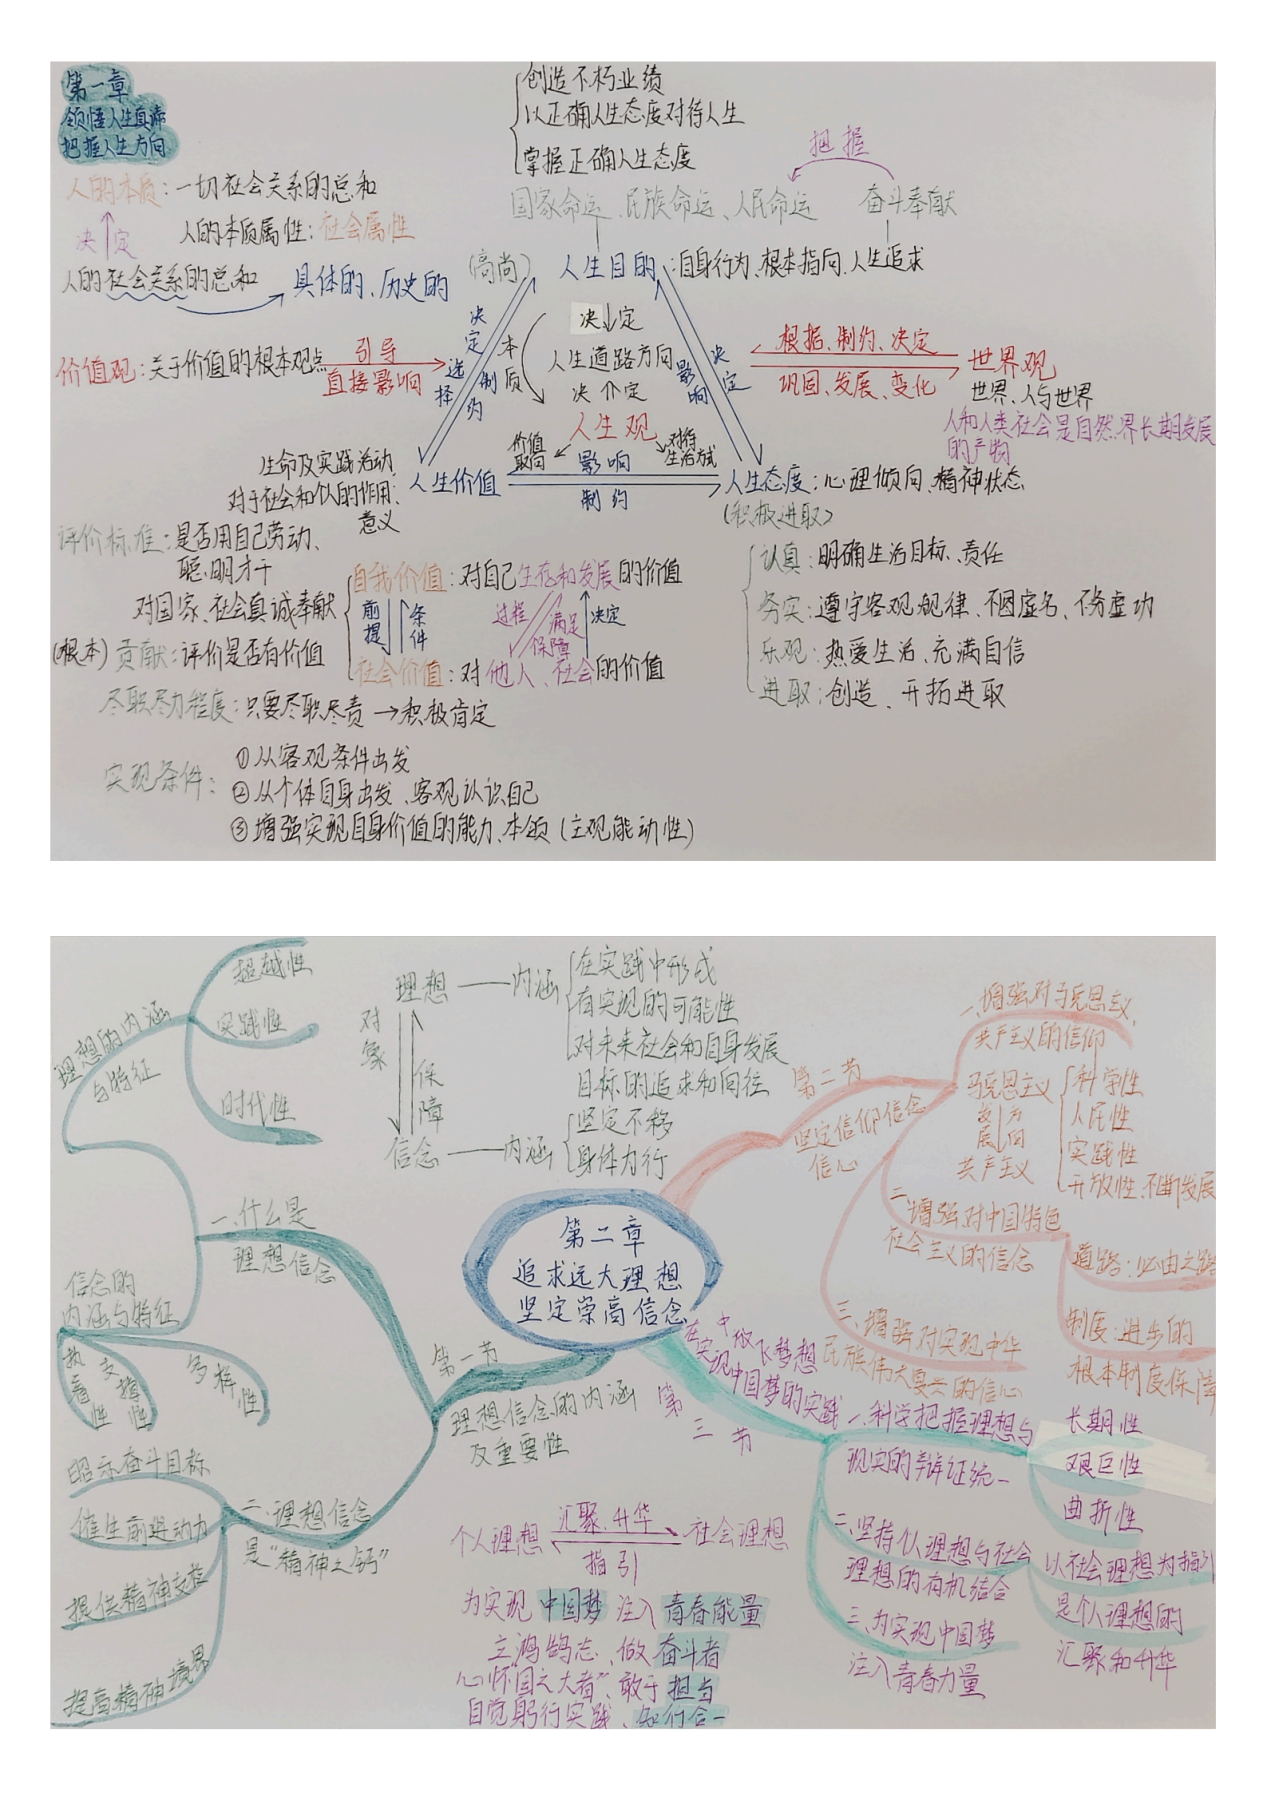 第一章
领悟人生真谛
把握人生方向
创造不朽业绩
以正确人生态度对待人生
掌握正确人生态度
把握
国家命运、民族命运、人民命运
奋斗奉献
人的本质：一切社会关系的总和
决定
人的本质属性：社会属性
人的社会关系的总和
具体的、历史的
(高尚)
人生目的：自身行为、根本指向、人生追求
决定
人生道路方向
决定
人生观
本质
价值取向
对待生活方式
决定
选择
制约
影响
决定
价值观：关于价值的根本观点
引导
直接影响
根据、制约、决定
巩固、发展、变化
世界观
世界、人与世界
人和人类社会是自然界长期发展
的产物
生命及实践活动
对于社会和个人的作用、
意义
人生价值
影响
制约
人生态度：心理倾向、精神状态
(积极进取)
评价标准：是否用自己劳动、
聪明才干
对国家、社会真诚奉献
(根本)贡献：评价是否有价值
尽职尽力程度：只要尽职尽责→积极肯定
自我价值：对自己生存和发展的价值
前提
条件
过程
满足
保障
决定
社会价值：对他人、社会的价值
认真：明确生活目标、责任
务实：遵守客观规律、不图虚名、不务虚功
乐观：热爱生活、充满自信
进取：创造、开拓进取
实现条件：
①从客观条件出发
②从个体自身出发、客观认识自己
③增强实现自身价值的能力、本领(主观能动性)
第二章
追求远大理想
坚定崇高信念
第一节
理想信念的内涵
及重要性
一、什么是
理想信念
理想的内涵
与特征
超越性
实践性
时代性
信念的
内涵与特征
执着性
支撑性
多样性
二、理想信念
是“精神之钙”
昭示奋斗目标
催生前进动力
提供精神支柱
提高精神境界
理想——内涵
在实践中形成
有实现的可能性
对未来社会和自身发展
目标的追求和向往
对象
保障
信念——内涵
坚定不移
身体力行
第二节
坚定信仰信念
信心
一、增强对马克思主义、
共产主义的信仰
马克思主义
发展
方向
共产主义
科学性
人民性
实践性
开放性、不断发展
二、增强对中国特色
社会主义的信念
道路：必由之路
制度：进步的
根本制度保障
三、增强对实现中华
民族伟大复兴的信心
第三节
在实现中国梦的实践
中放飞梦想
一、科学把握理想与
现实的辩证统一
长期性
艰巨性
曲折性
二、坚持个人理想与社会
理想的有机结合
以社会理想为指引
是个人理想的
汇聚和升华
三、为实现中国梦
注入青春力量
个人理想
汇聚、升华
指引
社会理想
为实现中国梦注入青春能量
立鸿鹄志、做奋斗者
心怀“国之大者”、敢于担当
自觉躬行实践、知行合一